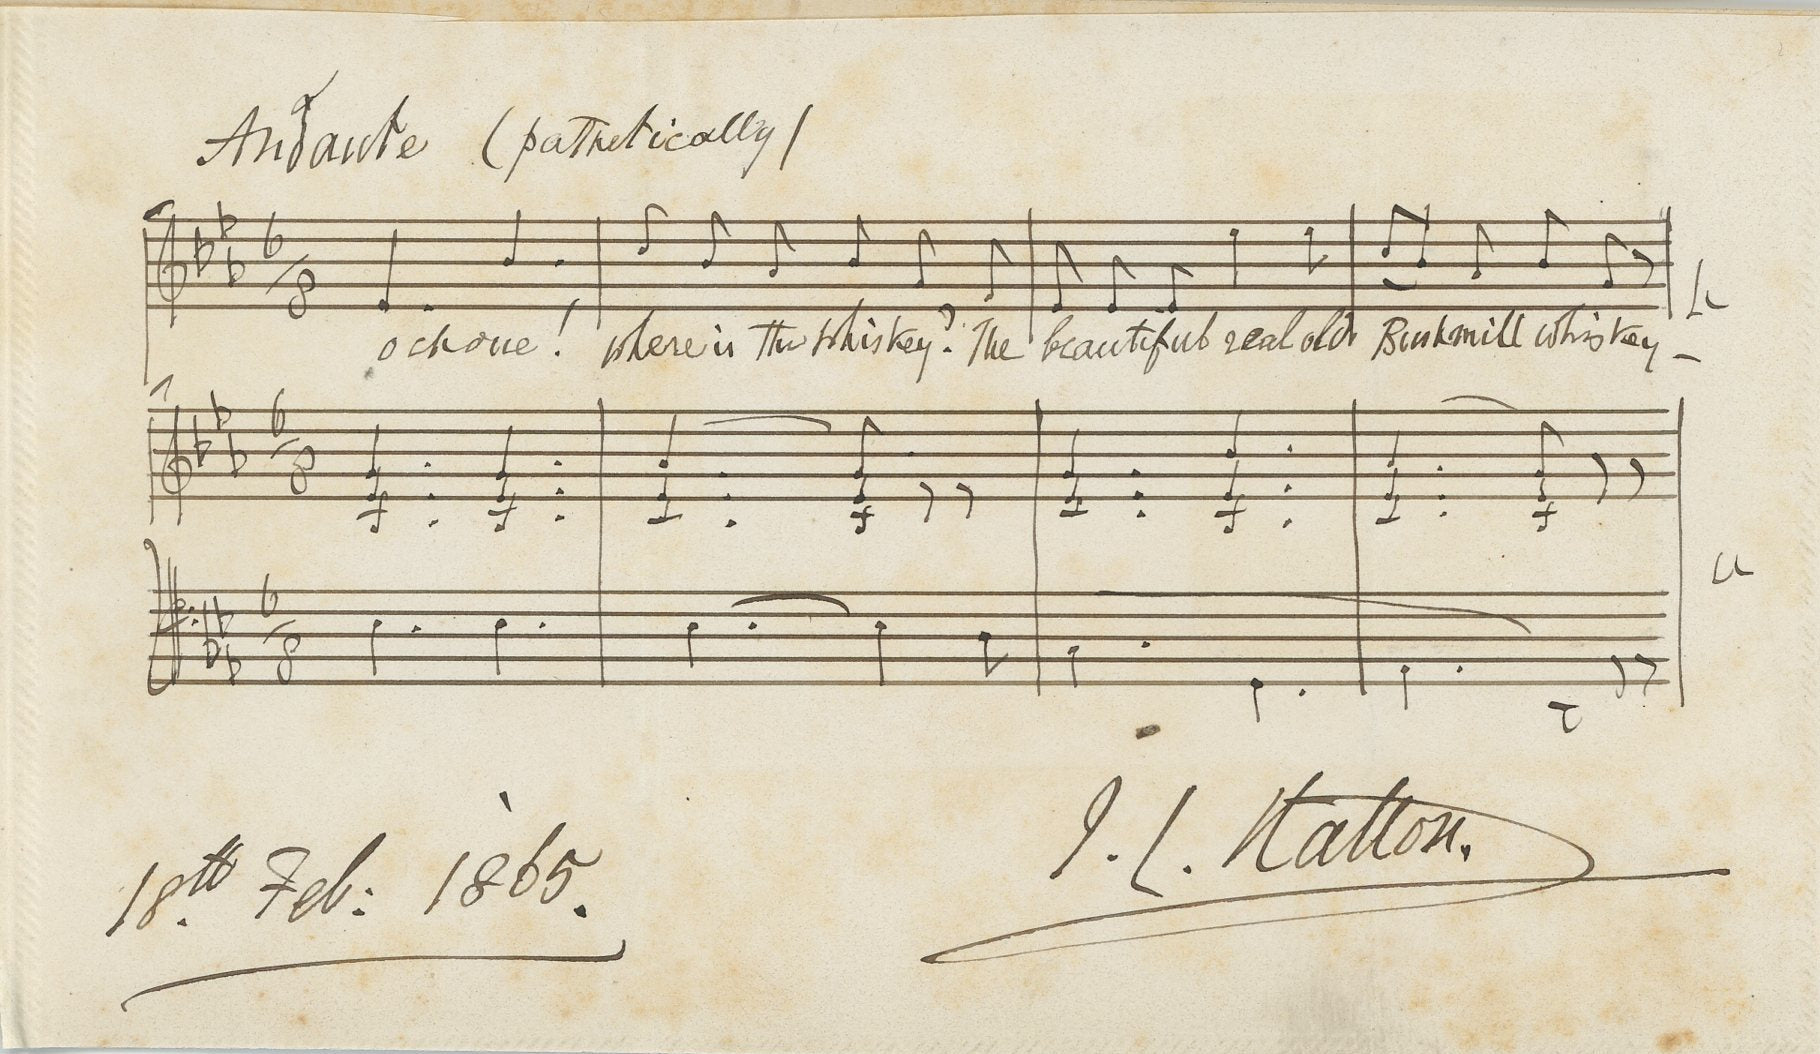 Andante (pathetically)
6/8
ochone! where is the whiskey? The beautiful real old Bushmill whiskey –
6/8
6/8
J. L. Hatton.
18.th Feb: 1865.